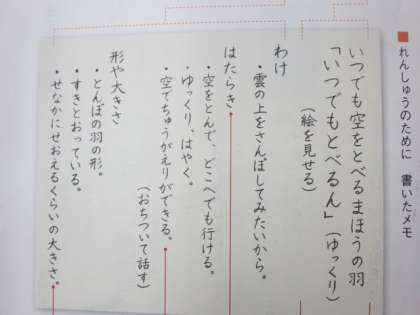 ■れんしゅうのために 書いたメモ
いつでも空をとべるまほうの羽
「いつでもとべるん」(ゆっくり)
(絵を見せる)
わけ
・雲の上をさんぽしてみたいから。
はたらき
・空をとんで、どこへでも行ける。
・ゆっくり、はやく。
・空でちゅうがえりができる。
(おちついて話す)
形や大きさ
・とんぼの羽の形。
・すきとおっている。
・せなかにせおえるくらいの大きさ。